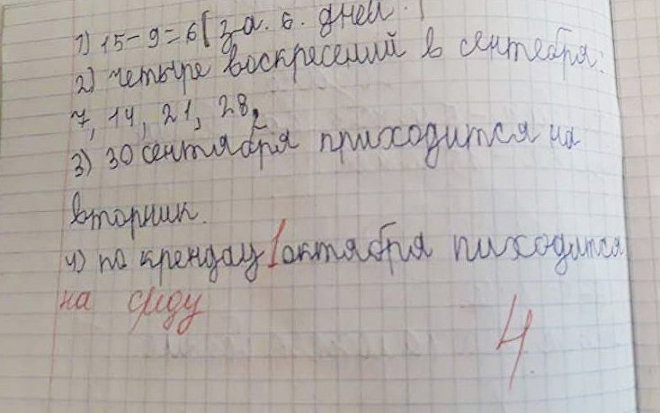 1) 15-9=6( за. 6. дней.
2) четыре воскресений в сентебря.
7, 14, 21, 28,
3) 30 сентября приходится на
вторник.
4) по крендау 1 октября пиходится
на среду
4